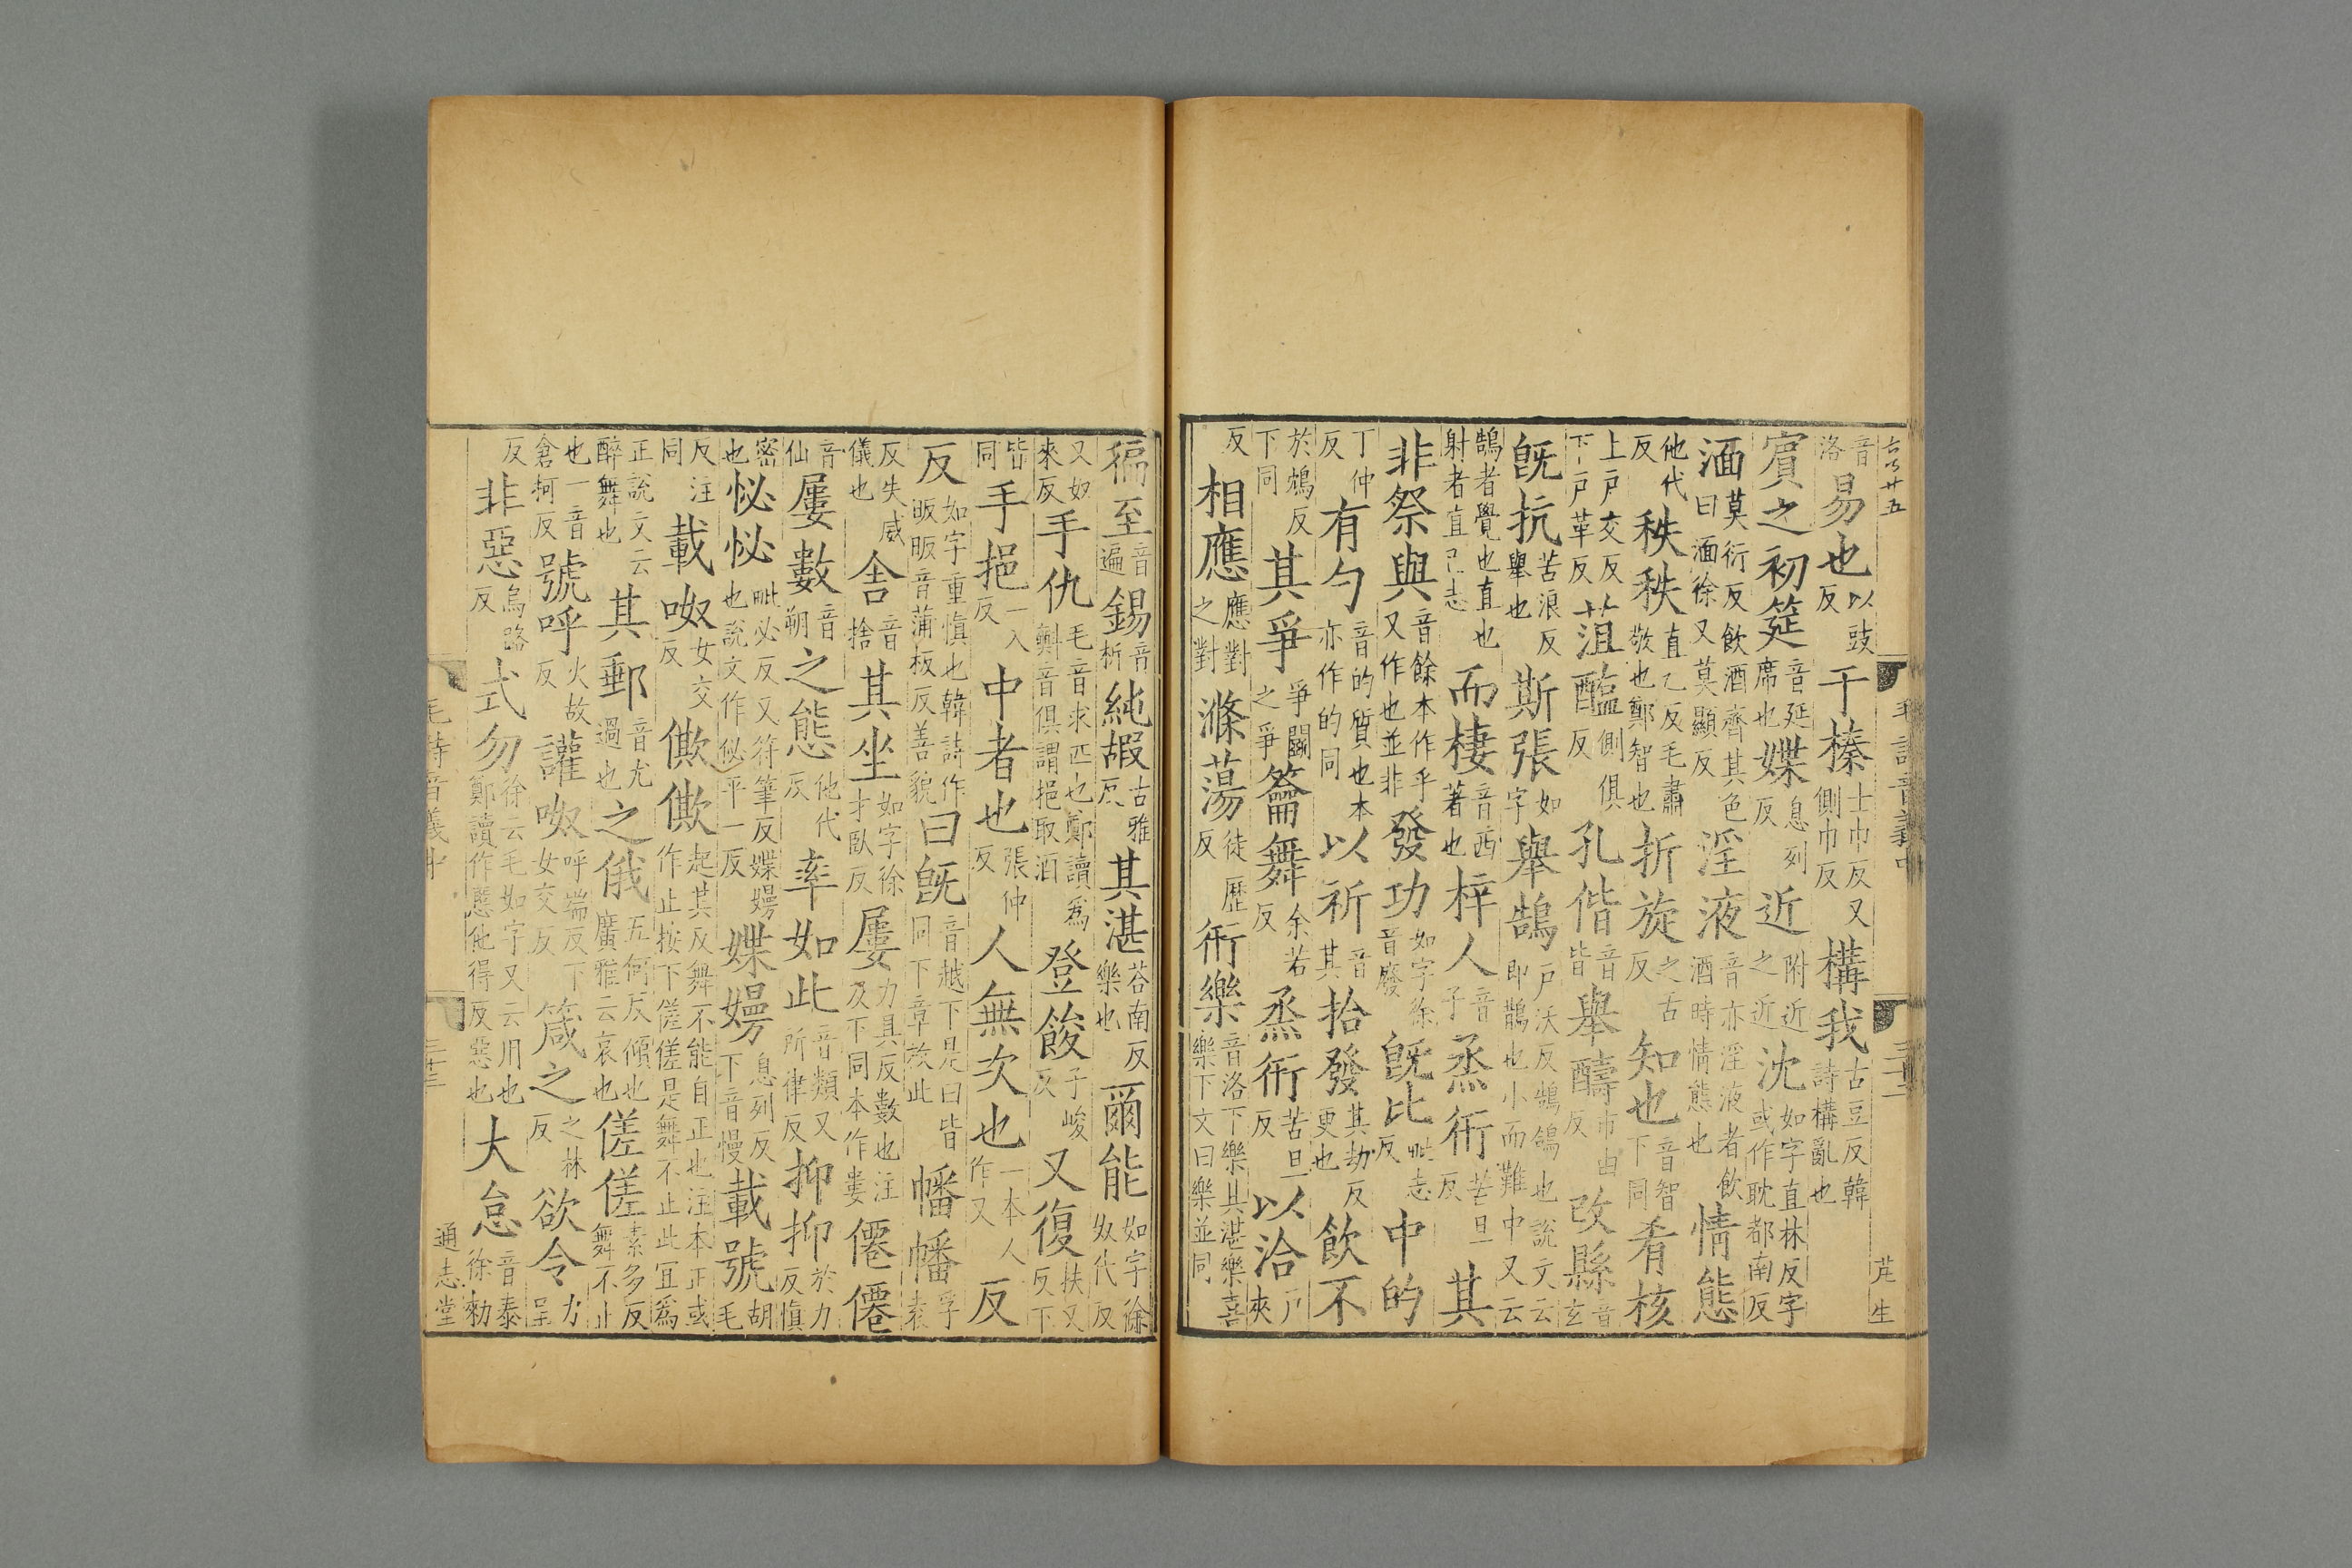 音洛易也以豉反于榛士巾反又側巾反構我古豆反韓詩構亂也
賓之初筵音延席也媟息列反近附近之近沈如字直林反字或作耽都南反
湎莫衍反飲酒齊其色曰湎徐又莫顯反淫液音亦淫液者飲酒時情態也情態
他代反秩秩直乙反毛肅敬也鄭智也折旋之古反知也音智下同肴核
上戸交反下戸革反菹醢側俱反孔偕音皆舉醻市由反改縣音玄
旣抗苦浪反舉也斯張如字舉鵠戸沃反鵠鴿也說文云即鵲也小而難中又云
鵠者覺也直也射者直己志而棲音西著也梓人音子烝衎苦旦反其
非祭與音餘本作乎又作也並非發功如字徐音廢旣比毗志反中的
丁仲反有勺音的質也本亦作的同以祈音其拾發其劫反更也飲不
於鴆反下同其爭爭鬬之爭籥舞余若反烝衎苦旦反以洽戸夾
反相應應對之對滌蕩徒歷反衎樂音洛下樂其湛樂喜樂下文曰樂並同
毛詩音義中
三十二
芘生
徧至音遍錫音析純嘏古雅反其湛荅南反樂也爾能如字徐奴代反
又奴來反手仇毛音求匹也鄭讀爲㪺音俱謂挹取酒登餕子峻反又復扶又反下
皆同手挹一入反中者也張仲反人無次也一本人作又反
反如字重愼也韓詩作昄昄音蒲板反善貌曰旣音越下是曰皆同下章放此幡幡孚袁
反失威儀也舍音捨其坐如字徐才臥反屢力具反數也注及下同本作婁僊僊
音仙屢數音朔之態他代反率如此音類又所律反抑抑於力反愼
密也怭怭毗必反又符筆反媟嫚也說文作佖平一反媟嫚息列反下音慢載號胡毛
反注同載呶女交反僛僛起其反舞不能自正也注本正或作止按下傞傞是舞不止此宜爲
正說文云醉舞也其郵音尤過也之俄五何反傾也廣雅云哀也傞傞素多反舞不止
也一音倉柯反號呼火故反讙呶呼端反下女交反箴之之林反欲令力呈
反非惡烏路反式勿徐云毛如字又云用也鄭讀作慝他得反惡也大怠音泰徐勑
毛詩音義中
三十二
通志堂